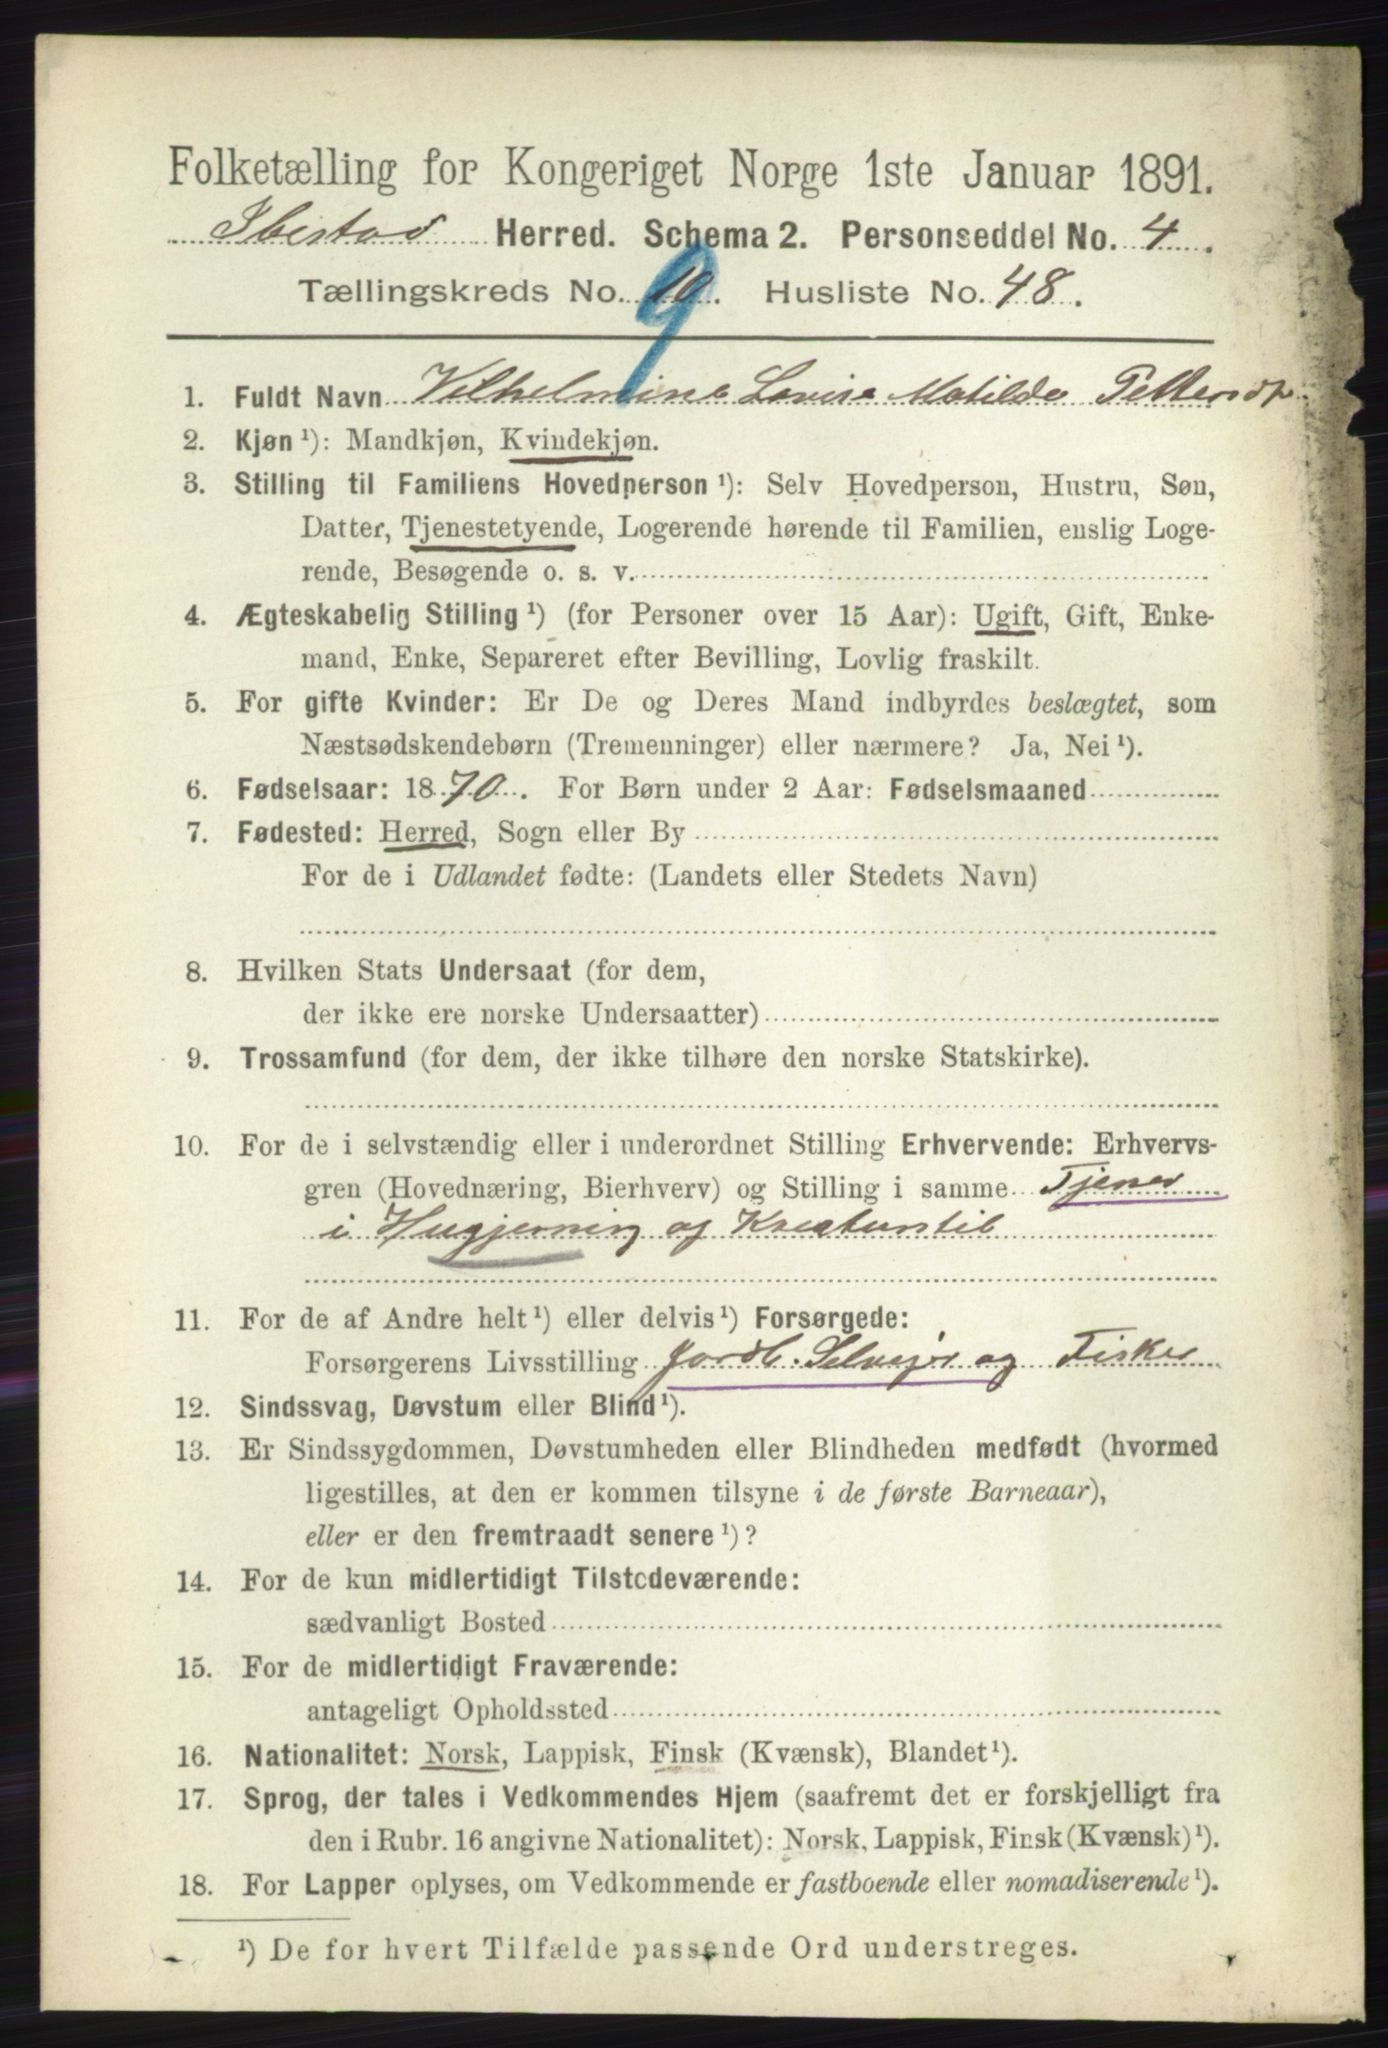 Folketælling for Kongeriget Norge 1ste Januar 1891.
Ibestad Herred. Schema 2. Personseddel No. 4.
Tællingskreds No. 10. Husliste No. 48.
9
1. Fuldt Navn Vilhelmine Lovise Matilde
2. Kjøn ¹): Mandkjøn, Kvindekjøn.
3. Stilling til Familiens Hovedperson ¹): Selv Hovedperson, Hustru, Søn,
Datter, Tjenestetyende, Logerende hørende til Familien, enslig Loge-
rende, Besøgende o. s. v.
4. Ægteskabelig Stilling ¹) (for Personer over 15 Aar): Ugift, Gift, Enke-
mand, Enke, Separeret efter Bevilling, Lovlig fraskilt.
5. For gifte Kvinder: Er De og Deres Mand indbyrdes beslægtet, som
Næstsødskendebørn (Tremenninger) eller nærmere? Ja, Nei ¹).
6. Fødselsaar: 1870. For Børn under 2 Aar: Fødselsmaaned
7. Fødested: Herred, Sogn eller By
For de i Udlandet fødte: (Landets eller Stedets Navn)
8. Hvilken Stats Undersaat (for dem,
der ikke ere norske Undersaatter)
9. Trossamfund (for dem, der ikke tilhøre den norske Statskirke).
10. For de i selvstændig eller i underordnet Stilling Erhvervende: Erhvervs-
gren (Hovednæring, Bierhverv) og Stilling i samme Tjener
i Husgjerning og Kreaturstel
11. For de af Andre helt ¹) eller delvis ¹) Forsørgede:
Forsørgerens Livsstilling Jordb. Selveier og Fisker
12. Sindssvag, Døvstum eller Blind ¹).
13. Er Sindssygdommen, Døvstumheden eller Blindheden medfødt (hvormed
ligestilles, at den er kommen tilsyne i de første Barneaar),
eller er den fremtraadt senere ¹)?
14. For de kun midlertidigt Tilstedeværende:
sædvanligt Bosted
15. For de midlertidigt Fraværende:
antageligt Opholdssted
16. Nationalitet: Norsk, Lappisk, Finsk (Kvænsk), Blandet ¹).
17. Sprog, der tales i Vedkommendes Hjem (saafremt det er forskjelligt fra
den i Rubr. 16 angivne Nationalitet): Norsk, Lappisk, Finsk (Kvænsk) ¹).
18. For Lapper oplyses, om Vedkommende er fastboende eller nomadiserende ¹).
¹) De for hvert Tilfælde passende Ord understreges.